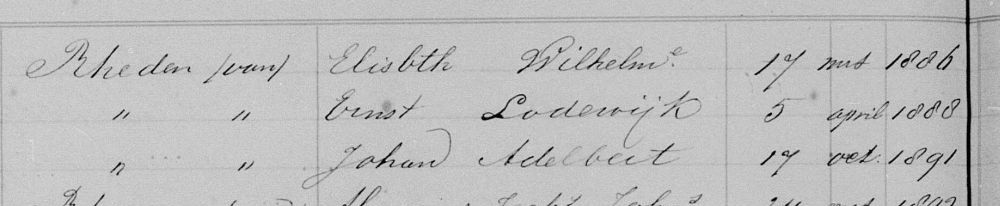 Rheden (van) Elisbth Wilhelm.e 17 mrt 1886
" " Ernst Lodewijk 5 april 1888
" " Johan Adelbert 17 oct. 1891